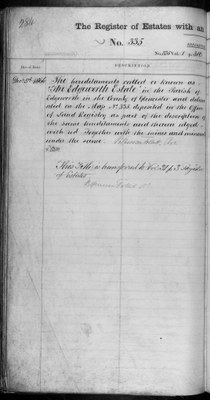 484
The Register of Estates with an
No. 335
DESCRIPTION
The hereditaments called or known as
"The Edgworth Estate" in the Parish of
Edgworth in the County of Gloucester and deline
ated in the Map No. 335 deposited in the Office
of Land Registry as part of the description of
the same hereditaments and therein edged
with red Together with the mines and minerals
under the same
This Title is transferred to Vol 21 p. 3 Register
of Estates